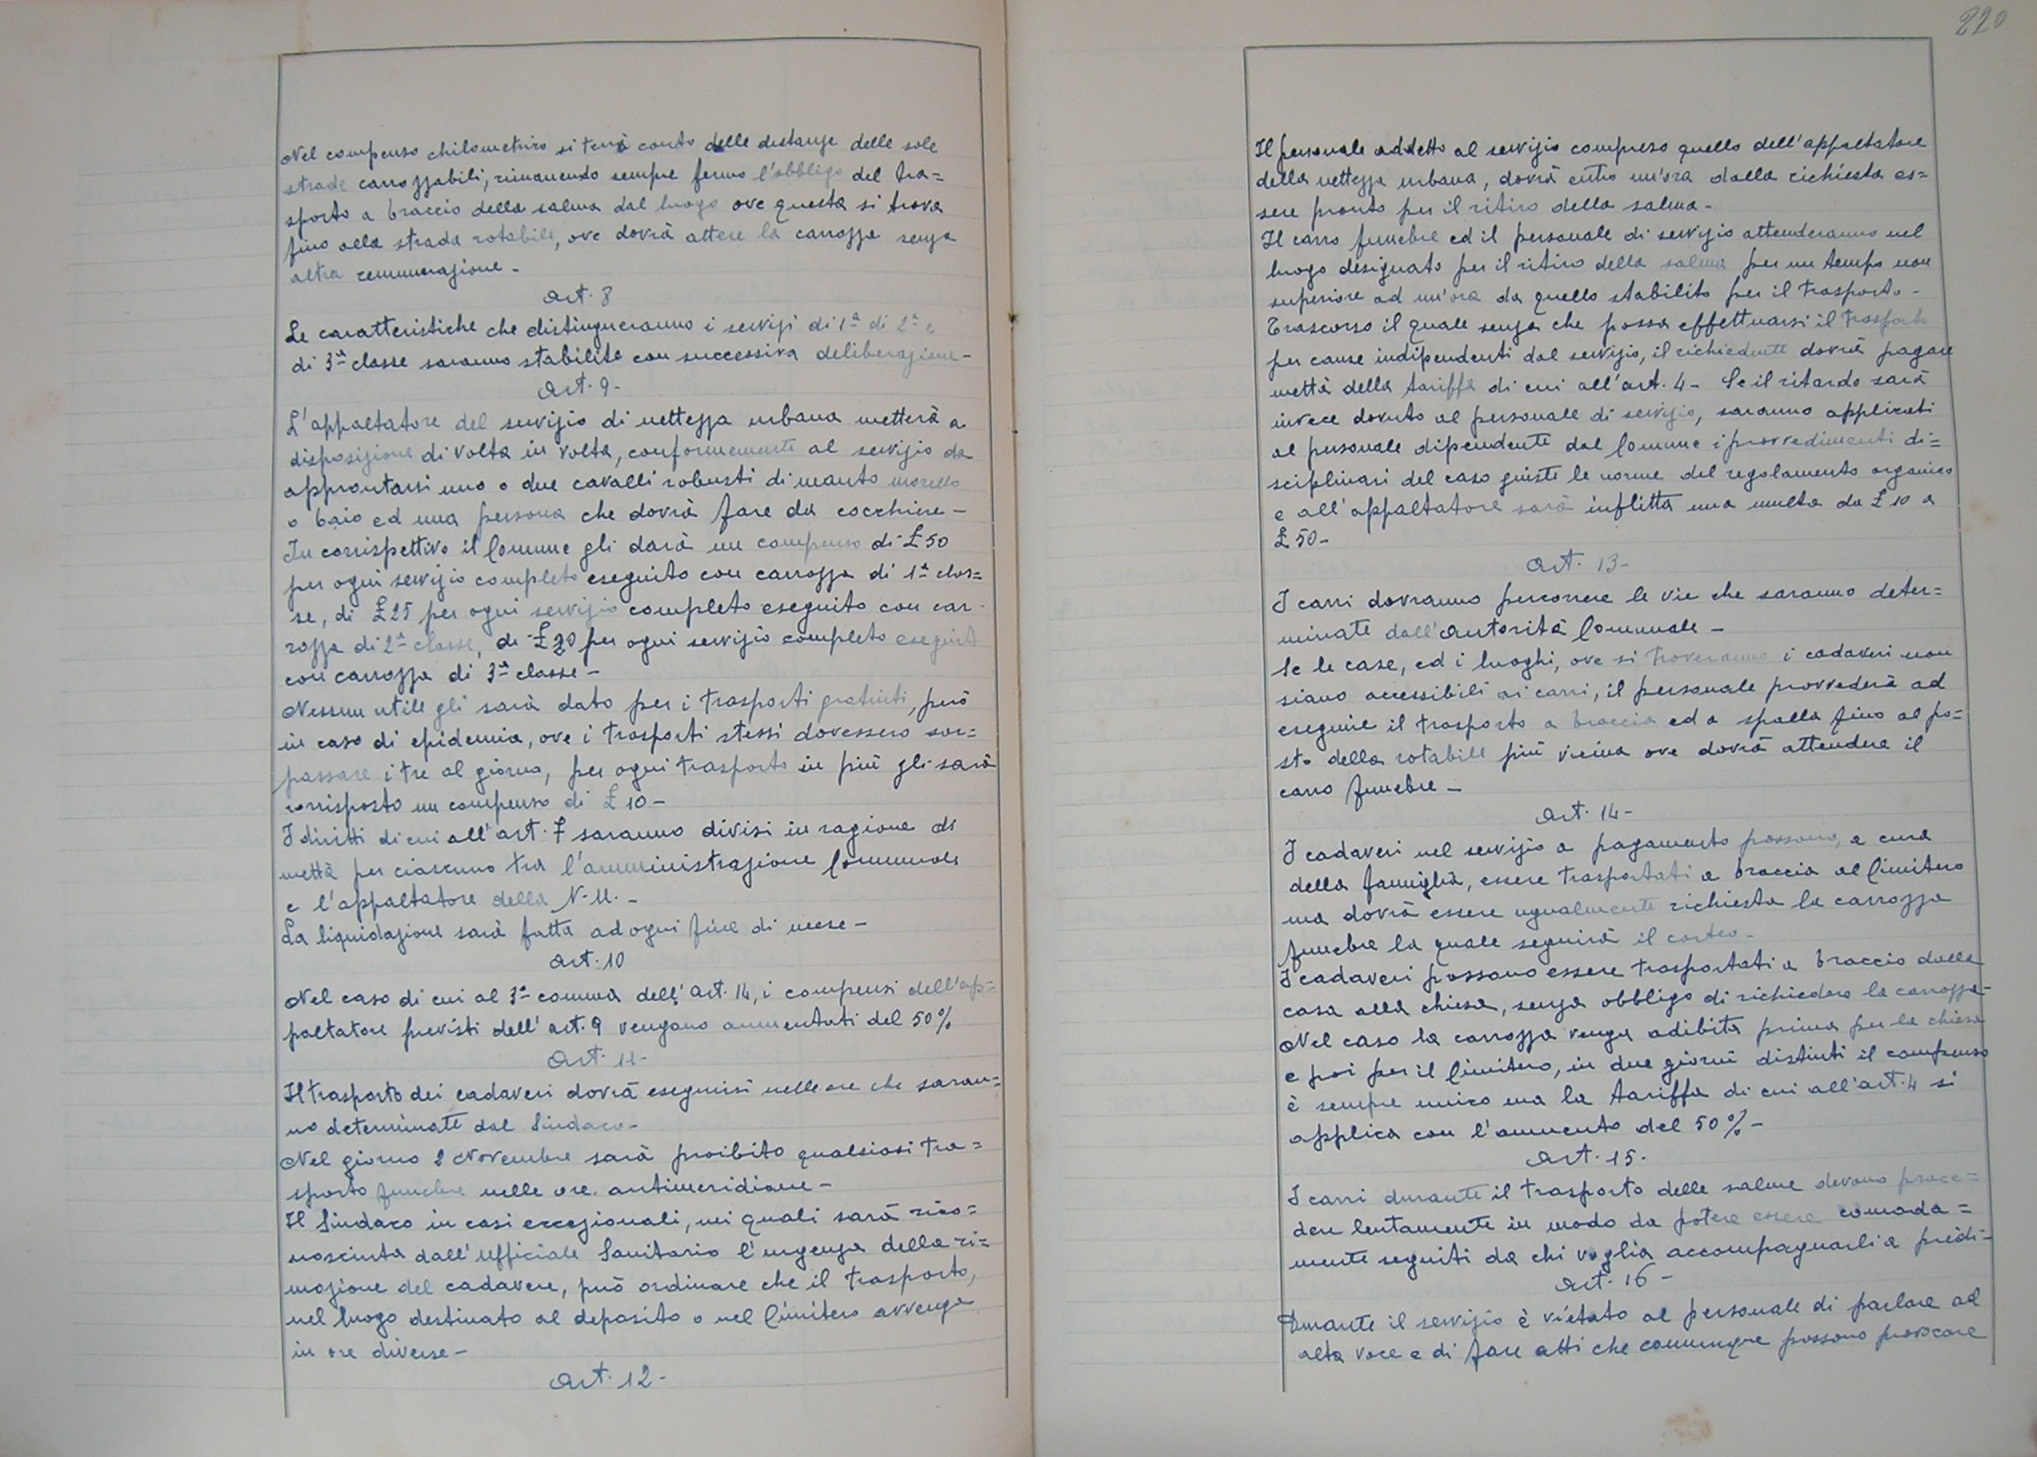 Nel compenso chilometrico si terrà conto delle distanze delle sole
strade carrozzabili, rimanendo sempre fermo l'obbligo del tra=
sporto a braccio della salma dal luogo ove questa si trova
fino alla strada rotabile, ove dovrà attere la carrozza senza
altra remunerazione -
Art. 8
Le caratteristiche che distingueranno i servizi di 1ª di 2ª e
di 3ª classe saranno stabilite con successiva deliberazione -
Art. 9 -
L'appaltatore del servizio di nettezza urbana metterà a
disposizione di volta in volta, conformemente al servizio da
approntarsi uno o due cavalli robusti di manto morello
o baio ed una persona che dovrà fare da cocchiere -
In corrispettivo il Comune gli darà un compenso di £ 50
per ogni servizio completo eseguito con carrozza di 1ª clas=
se, di £ 25 per ogni servizio completo eseguito con car-
rozza di 2ª classe, di £ 20 per ogni servizio completo eseguito
con carrozza di 3ª classe -
Nessun utile gli sarà dato per i trasporti gratuiti, però
in caso di epidemia, ove i trasporti stessi dovessero sor=
passare i tre al giorno, per ogni trasporto in più gli sarà
corrisposto un compenso di £ 10 -
I diritti di cui all'art. 7 saranno divisi in ragione di
mettà per ciascuno tra l'amministrazione Comunale
e l'appaltatore della N. U. -
La liquidazione sarà fatta ad ogni fine di mese -
Art. 10
Nel caso di cui al 3º comma dell'art. 14, i compensi dell'ap=
paltatore previsti dell'art. 9 vengono aumentati del 50%
Art. 11 -
Il trasporto dei cadaveri dovrà eseguirsi nelle ore che saran=
no determinate dal Sindaco -
Nel giorno 2 Novembre sarà proibito qualsiasi tra=
sporto funebre nelle ore antimeridiane -
Il Sindaco in casi eccezionali, nei quali sarà rico=
nosciuta dall'ufficiale Sanitario l'urgenza della ri=
mozione del cadavere, può ordinare che il trasporto,
nel luogo destinato al deposito o nel Cimitero avvenga
in ore diverse -
Art. 12 -
220
Il personale addetto al servizio compreso quello dell'appaltatore
della nettezza urbana, dovrà entro un'ora dalla richiesta es=
sere pronto per il ritiro della salma -
Il carro funebre ed il personale di servizio attenderanno nel
luogo designato per il ritiro della salma per un tempo non
superiore ad un'ora da quello stabilito per il trasporto -
Trascorso il quale senza che possa effettuarsi il trasporto
per cause indipendenti dal servizio, il richiedente dovrà pagare
mettà della tariffa di cui all'art. 4 - Se il ritardo sarà
invece dovuto al personale di servizio, saranno applicati
al personale dipendente dal Comune i provvedimenti di=
sciplinari del caso giuste le norme del regolamento organico
e all'appaltatore sarà inflitta una multa da £ 10 a
£ 50 -
Art. 13 -
I carri dovranno percorrere le vie che saranno deter=
minate dall'autorità Comunale -
Se le case, ed i luoghi, ove si troveranno i cadaveri non
siano accessibili ai carri, il personale provvederà ad
eseguire il trasporto a braccia ed a spalla fino al po=
sto della rotabile più vicina ove dovrà attendere il
carro funebre -
Art. 14 -
I cadaveri nel servizio a pagamento possono, a cura
della famiglia, essere trasportati a braccia al Cimitero
ma dovrà essere ugualmente richiesta la carrozza
funebre la quale seguirà il corteo -
I cadaveri possono essere trasportati a braccio dalla
casa alla chiesa, senza obbligo di richiedere la carrozza -
Nel caso la carrozza venga adibita prima per la chiesa
e poi per il Cimitero, in due giorni distinti il compenso
è sempre unico ma la tariffa di cui all'art. 4 si
applica con l'aumento del 50% -
Art. 15 -
I carri durante il trasporto delle salme devono proce=
dere lentamente in modo da potere essere comoda=
mente seguiti da chi voglia accompagnarli a piedi -
Art. 16 -
Durante il servizio è vietato al personale di parlare ad
alta voce e di fare atti che comunque possono provocare